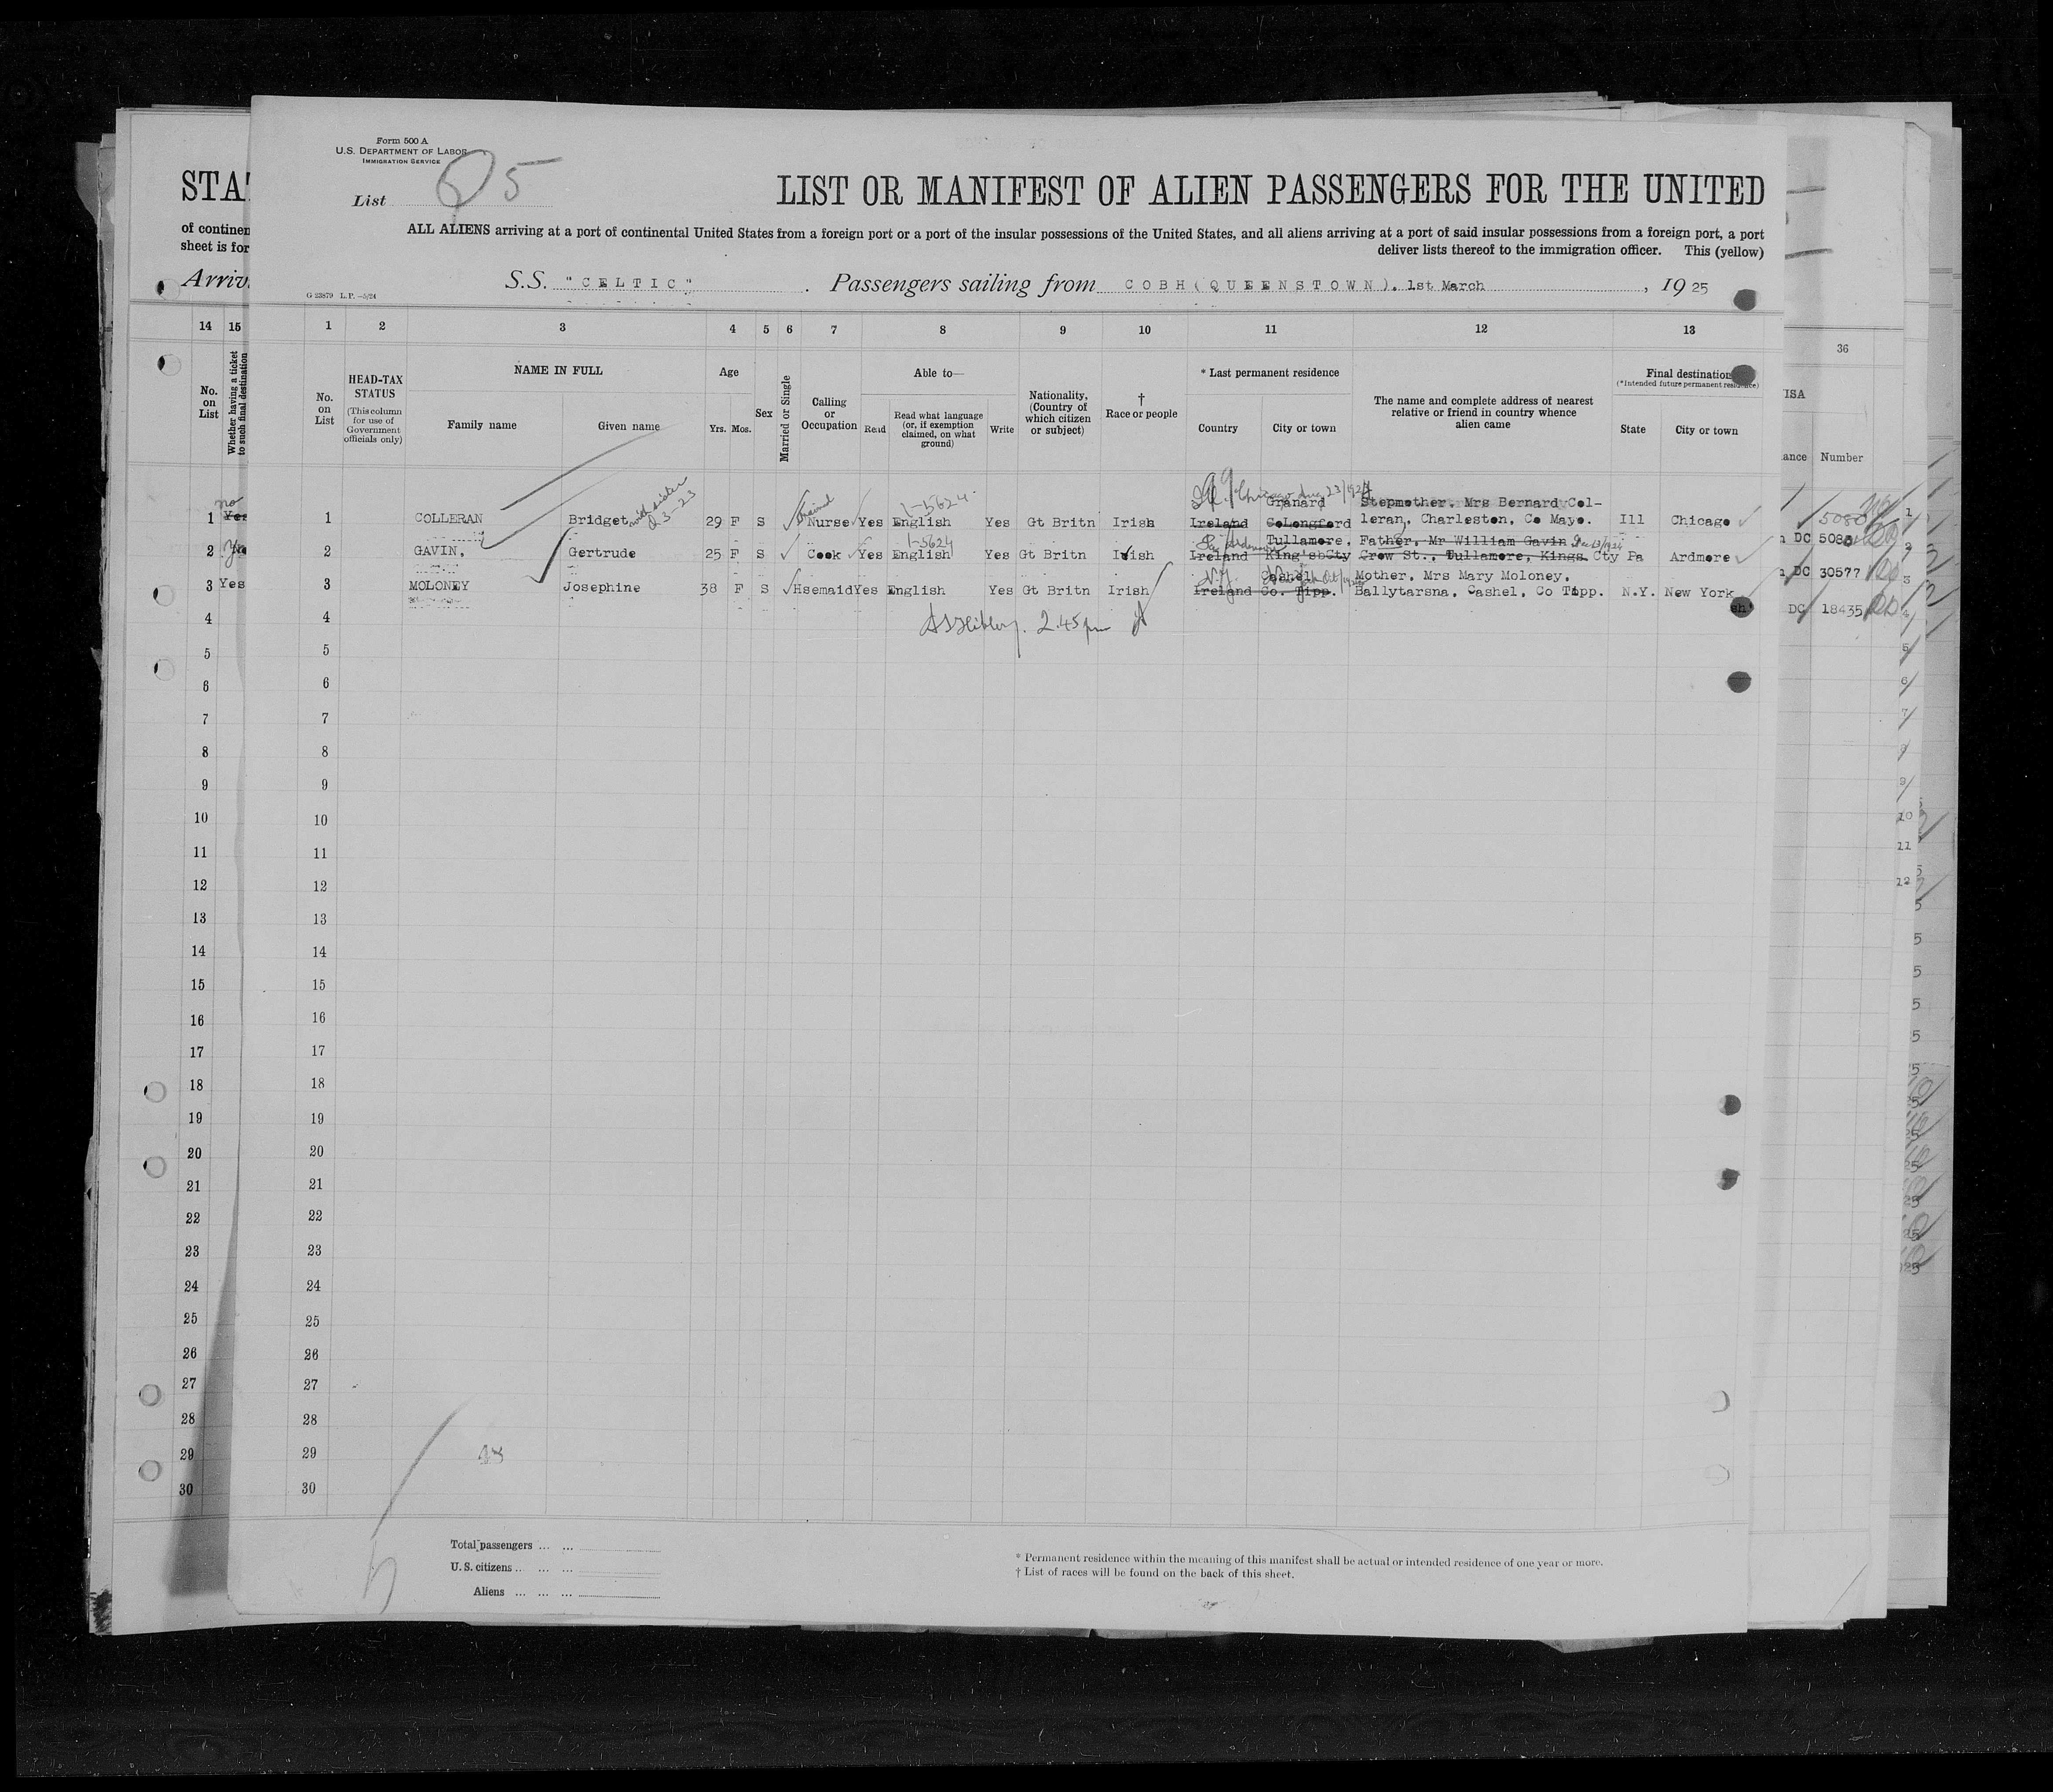 Form 500 A
U.S. DEPARTMENT OF LABOR
IMMIGRATION SERVICE
List 5
STA
LIST OR MANIFEST OF ALIEN PASSENGERS FOR THE UNITED
of continen
ALL ALIENS arriving at a port of continental United States from a foreign port or a port of the insular possessions of the United States, and all aliens arriving at a port of said insular possessions from a foreign port, a port
sheet is for
deliver lists thereof to the immigration officer. This (yellow)
Arriv
S.S. "CELTIC" . Passengers sailing from COBH (QUEENSTOWN). 1st March , 19 25
G 23879 L.P.—5/24
14 15 1 2 3 4 5 6 7 8 9 10 11 12 13 36
No. on List
Whether having a ticket to such final destination
No. on List
HEAD-TAX STATUS
(This column for use of Government officials only)
NAME IN FULL
Family name
Given name
Age
Yrs. Mos.
Sex
Married or Single
Calling or Occupation
Able to—
Read
Read what language (or, if exemption claimed, on what ground)
Write
Nationality, (Country of which citizen or subject)
† Race or people
* Last permanent residence
Country
City or town
The name and complete address of nearest relative or friend in country whence alien came
Final destination
(*Intended future permanent residence)
State
City or town
ISA
ance
Number
no
with sister
trained
1-5624
Chicago Aug 23/1924
Granard Stepmother, Mrs Bernard Col-
1 Yes 1 COLLERAN Bridget 29 F S Nurse Yes English Yes Gt Britn Irish Ireland CoLongford leran, Charleston, Co Mayo. Ill Chicago
1-5624
Tullamore, Father, Mr William Gavin
2 2 GAVIN, Gertrude 25 F S Cook Yes English Yes Gt Britn Irish Ireland King's Cty Crow St., Tullamore, Kings Cty Pa Ardmore
Cashel Mother, Mrs Mary Moloney,
3 Yes 3 MOLONEY Josephine 38 F S Hsemaid Yes English Yes Gt Britn Irish Ireland Co. Tipp. Ballytarsna, Cashel, Co Tipp. N.Y. New York
DC 30577
DC 18435
2.45 pm
4 4
5 5
6 6
7 7
8 8
9 9
10 10
11 11
12 12
13 13
14 14
15 15
16 16
17 17
18 18
19 19
20 20
21 21
22 22
23 23
24 24
25 25
26 26
27 27
28 28
29 29
30 30
Total passengers ... ...
U.S. citizens ... ... ...
Aliens ... ... ...
* Permanent residence within the meaning of this manifest shall be actual or intended residence of one year or more.
† List of races will be found on the back of this sheet.